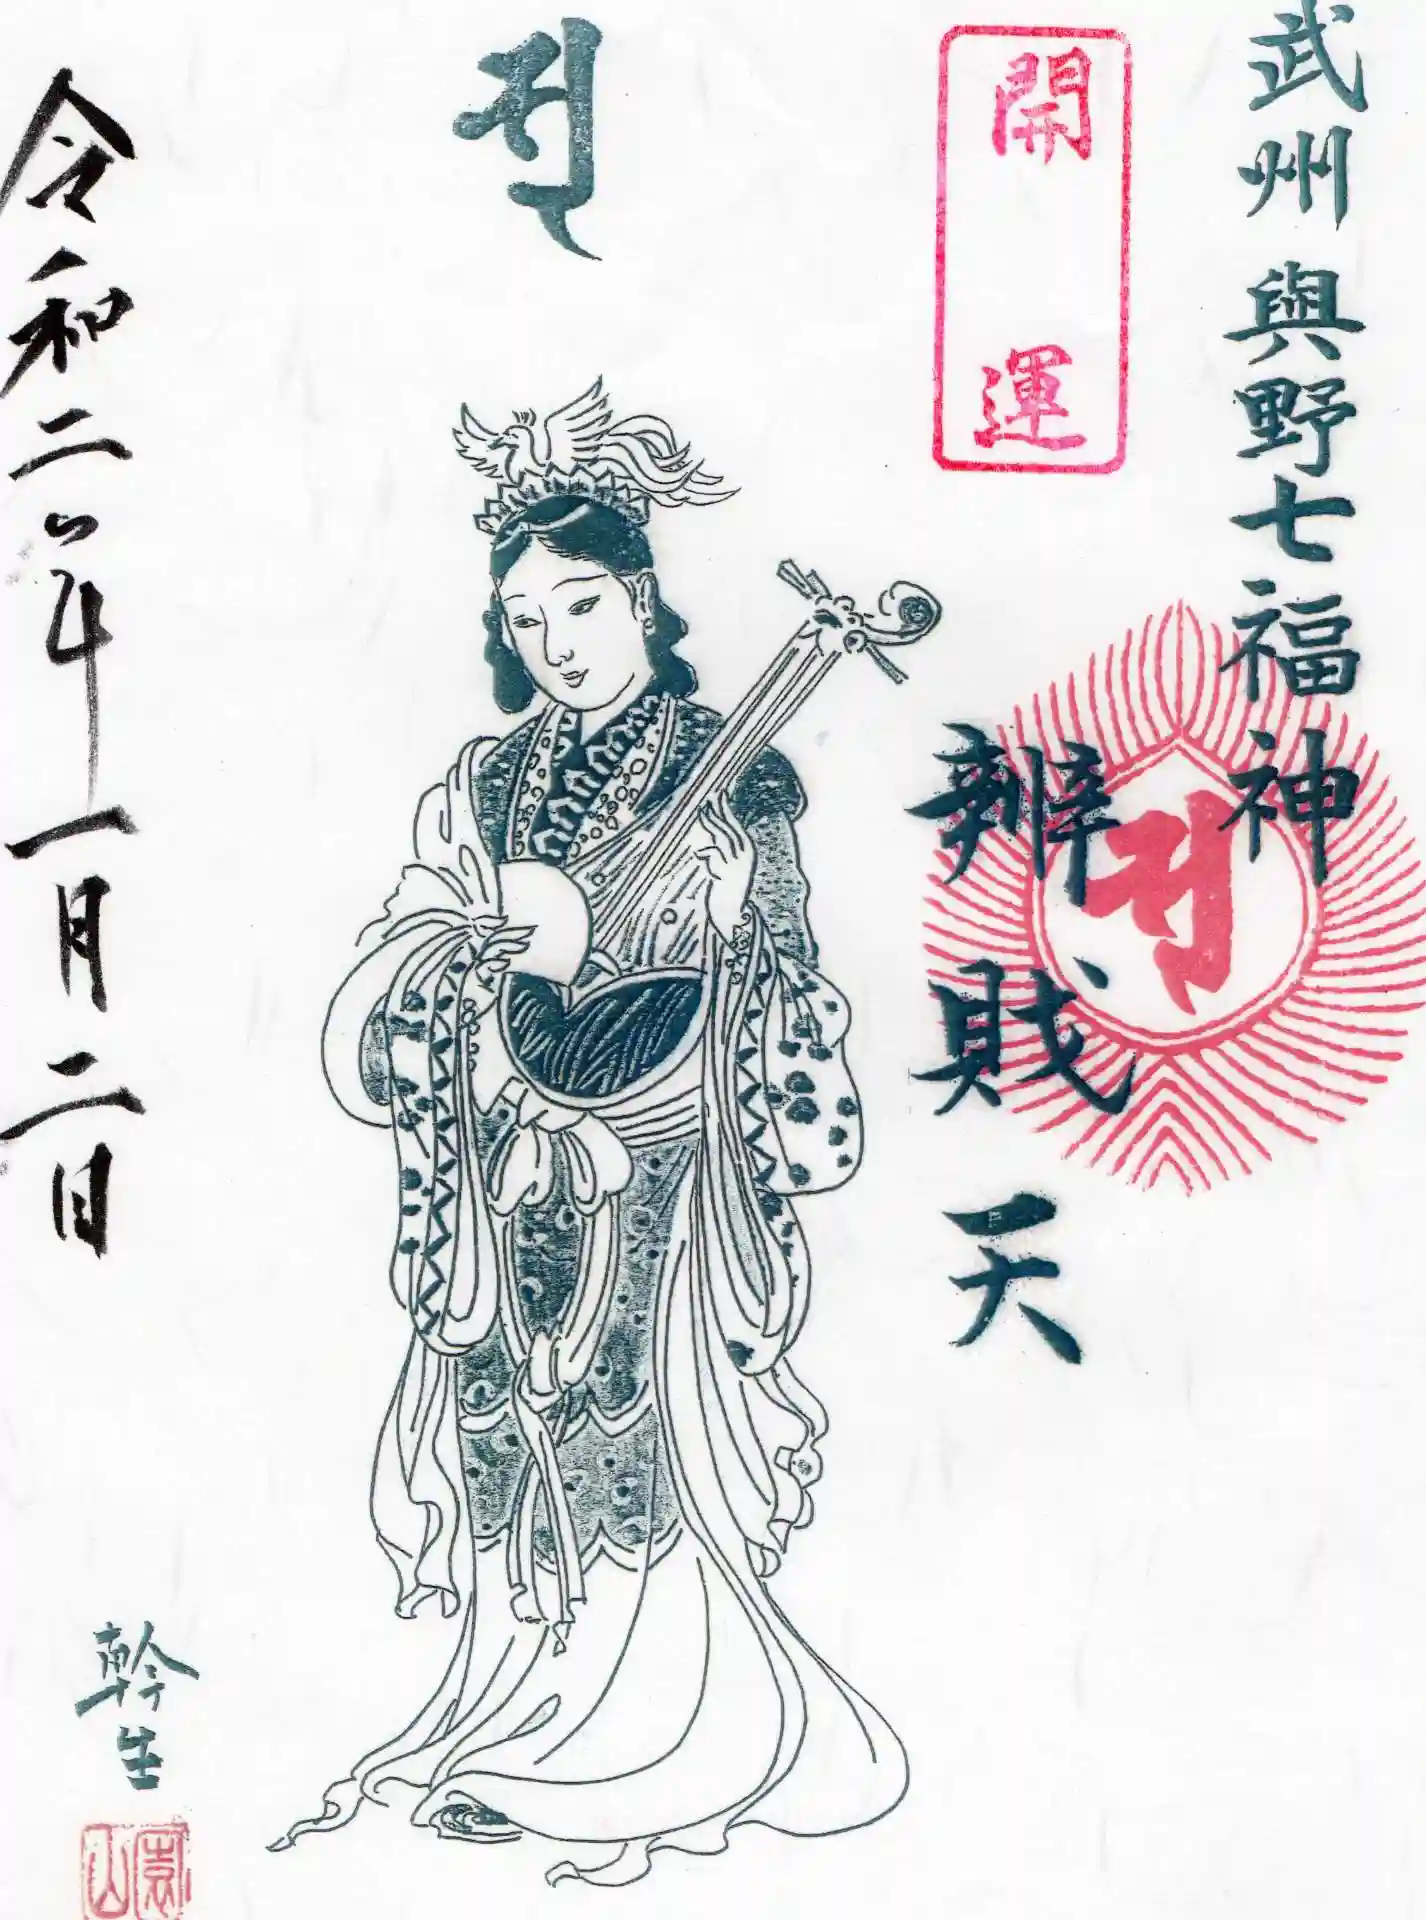 武州 與野七福神
開運
辨財天
𑖭
𑖭
令和二年一月二日